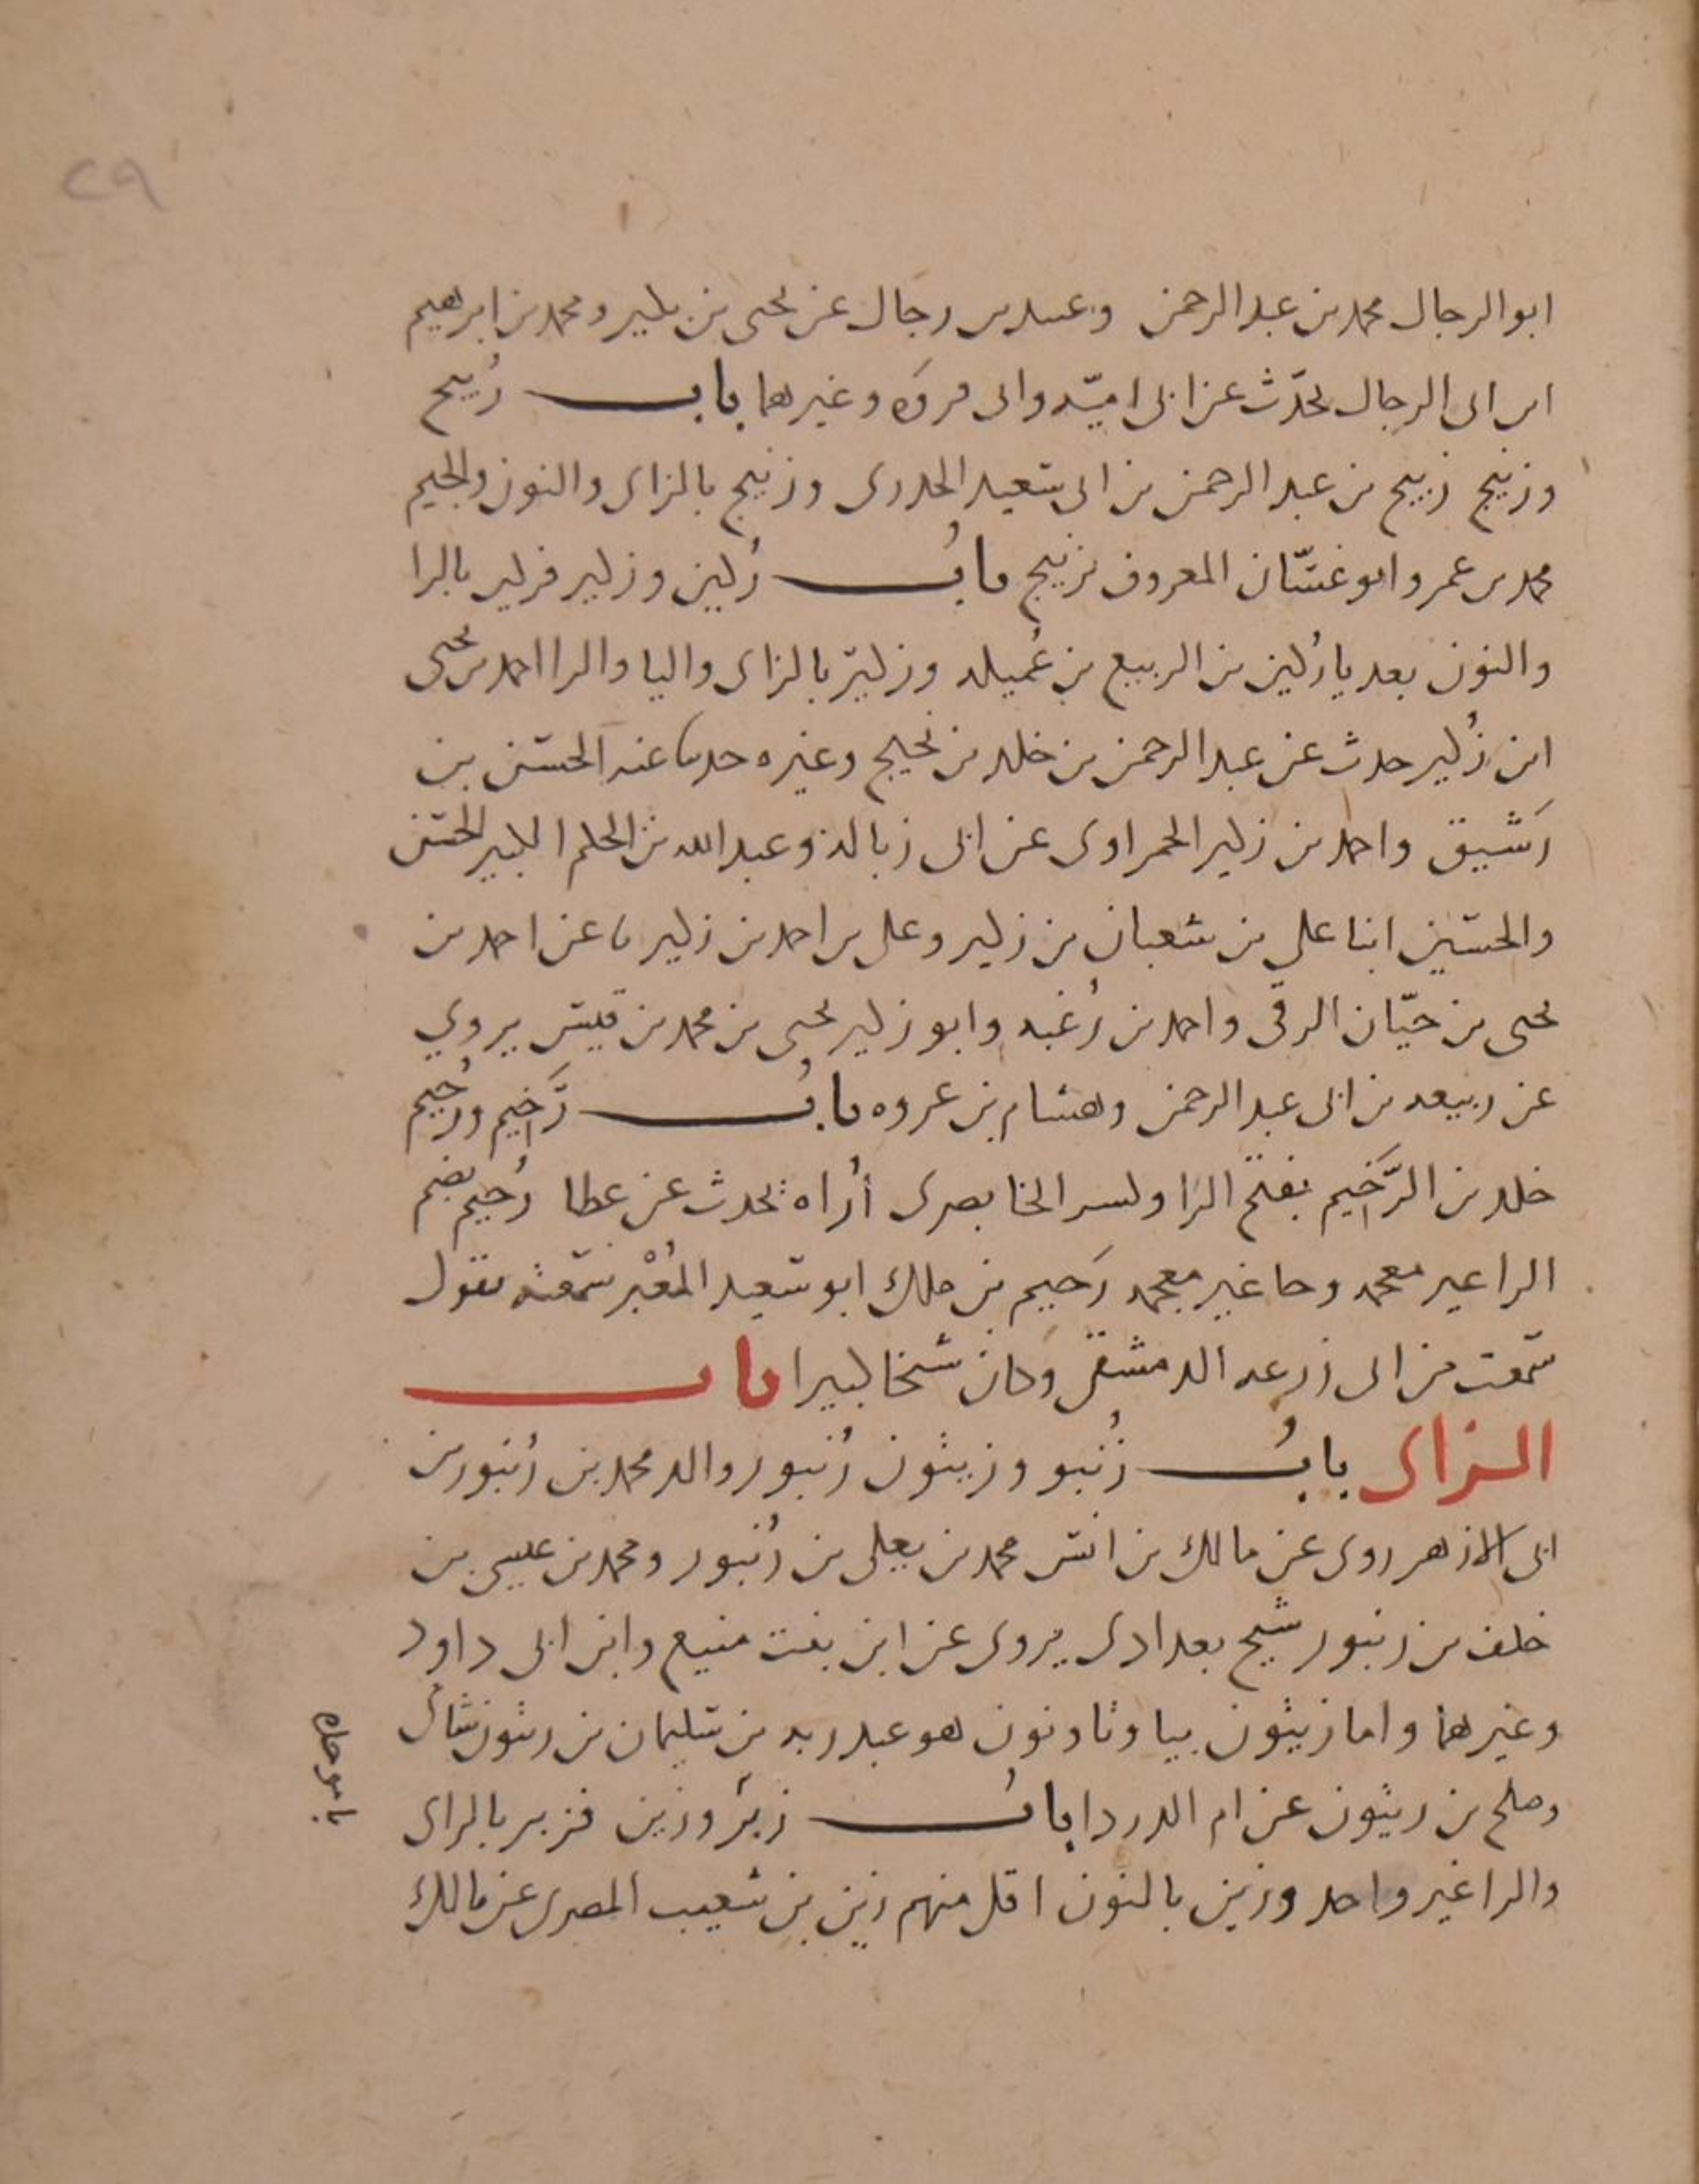 ٢٩
ابو الرجال محمد بن عبد الرحمن وعبيد بن رجال عن يحيى بن بكير ومحمد بن ابرهيم
ابن ابى الرجال يحدّث عن ابى اميّة وابى فروَة وغيرهما باب رُبيح
وزنيج رُبيح بن عبد الرحمن بن ابى سعيد الخدرى وزنيج بالزاى والنون والجيم
محمد بن عمرو ابو غسّان المعروف بزنيج بابُ رُكين وزكير فركين بالرا
والنون بعد يا رُكين بن الربيع بن عُميلة وزكير بالزاى واليا والرا احمد بن يحيى
ابن زُكير حدث عن عبد الرحمن بن خلد بن نجيح وغيره حدثنا عنه الحسن بن
رَشيق واحمد بن زكير الحمراوى عن ابى زبالة وعبد الله بن الحكم الكبير الحسن
والحسين ابنا على بن شعبان بن زكير وعلى بن احمد بن زكير نا عن احمد بن
يحيى بن حيّان الرقى واحمد بن زُغبه وابو زكير يحيى بن محمد بن قيس يروي
عن ربيعه بن ابى عبد الرحمن وهشام بن عروه بابُ رَخيم ورُحيم
خلد بن الرَّخيم بفتح الرا وكسر الخا بصرى أُراه يحدث عن عطا رُحيم بضم
الرا غير معجمه وحا غير معجمه رُحيم بن ملك ابو سعيد المُعَبْر سمعته يقول
سمعت من ابى زرعه الدمشقى وكان شيخا كبيرا باب
الزاى بابُ زُنبور وزيثون زُنبور والد محمد بن زُنبور بن
ابى الازهر روى عن مالك بن انس محمد بن يعلى بن زُنبور ومحمد بن عيسى بن
خلف بن زنبور شيخ بغدادى يروى عن ابن بنت منيع وابن ابى داود
وغيرهما واما زيثون بيا وثا ونون هو عبد ربه بن سليمان بن زيثون شامى
وصلح بن زيثون عن ام الدردا بابُ زبر وزين فزبر بالزاى
والرا غير واحد وزين بالنون اقل منهم زين بن شعيب المصرى عن مالك